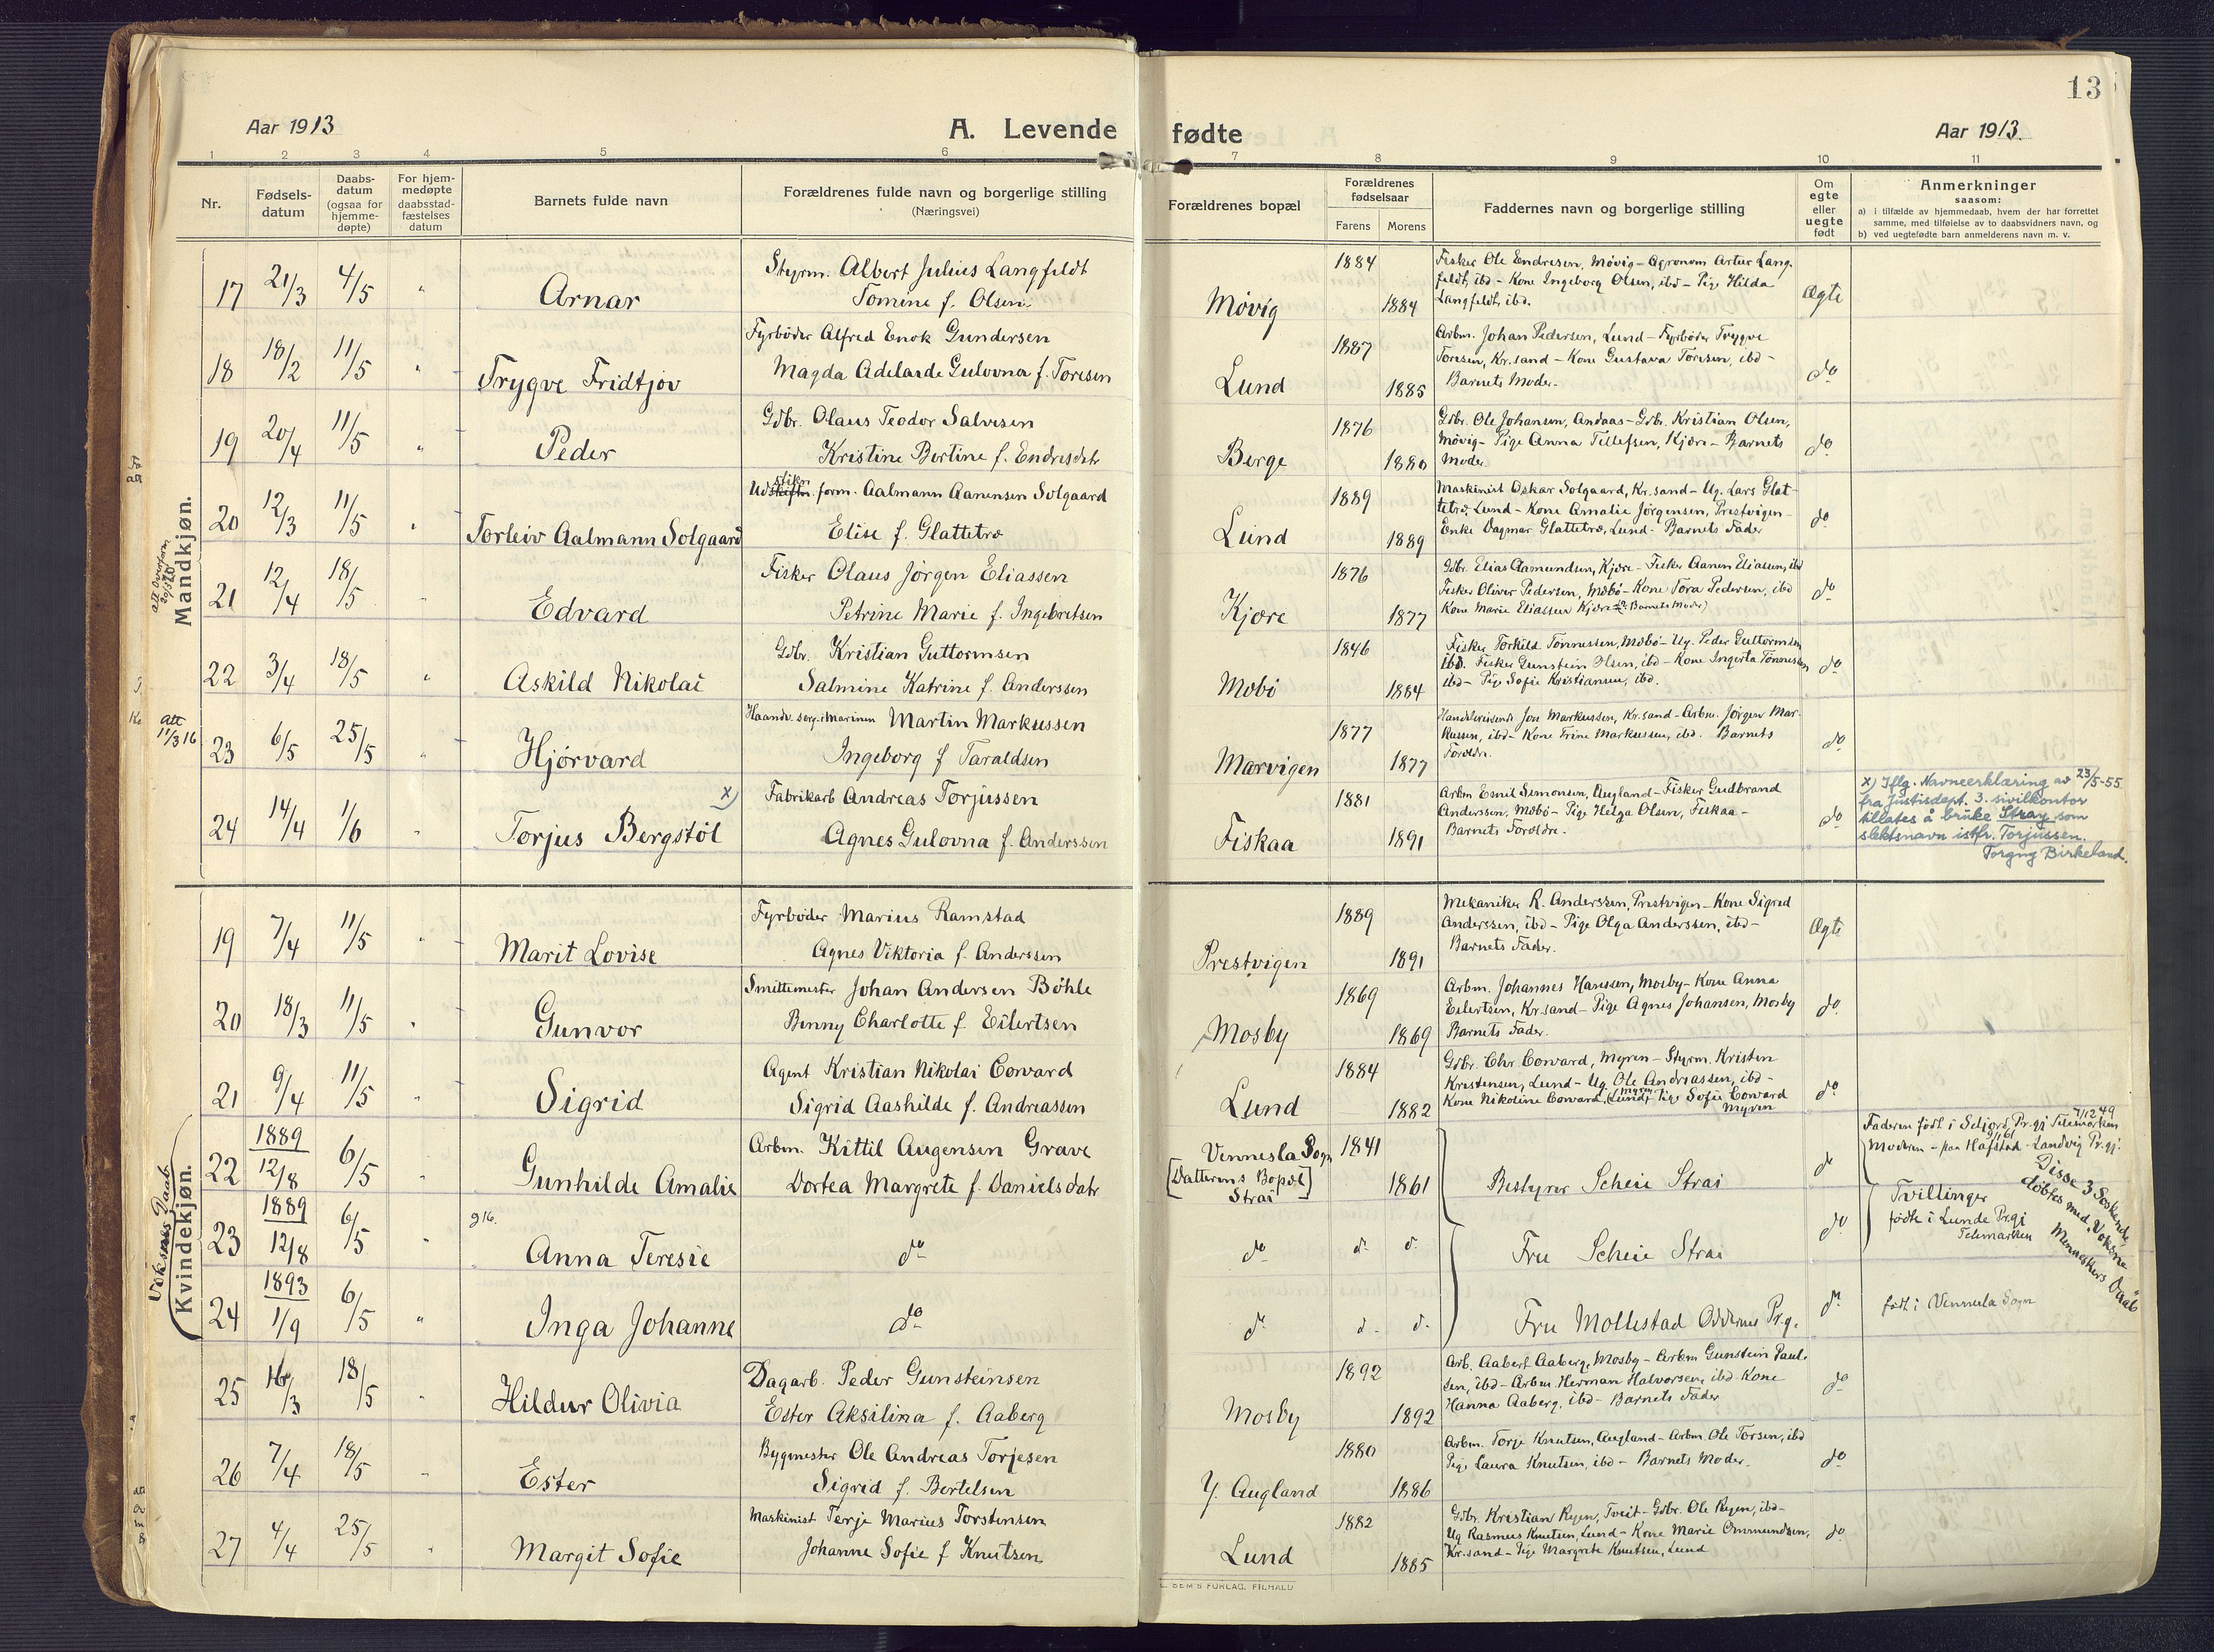 13
Aar 1913
A. Levende fødte
Aar 1913.
1 2 3 4 5 6 7 8 9 10 11
Nr.
Fødsels-
datum
Daabs-
datum
(ogsaa for
hjemme-
døpte)
For hjem-
medøpte
daabsstad-
fæstelses
datum
Barnets fulde navn
Forældrenes fulde navn og borgerlige stilling
(Næringsvei)
Forældrenes bopæl
Forældrenes
fødselsaar
Farens Morens
Faddernes navn og borgerlige stilling
Om
egte
eller
uegte
født
Anmerkninger
saasom:
a) i tilfælde av hjemmedaab, hvem der har forrettet
samme, med tilføielse av to daabsvidners navn, og
b) ved uegtefødte barn anmelderens navn m. v.
Mandkjøn.
17 21/3 4/5 " Arnar
Styrm. Albert Julius Langfeldt
Tomine f. Olsen.
Møvig 1884 1884
Fisker Ole Endresen, Møvig - Agronom Artur Lang-
feldt, ibd - Kone Ingeborg Olsen, ibd - Pige Hilda
Langfeldt, ibd.
Ægte
18 18/2 11/5 " Trygve Fridtjov
Fyrbøder Alfred Enok Gundersen
Magda Adelaide Gulovna f. Toresen
Lund 1887 1885
Arbm. Johan Pedersen, Lund - Fyrbøder Trygve
Toresen, Kr.sand - Kone Gustava Toresen, ibd -
Barnets Moder.
do
19 20/4 11/5 " Peder
Gdbr. Olaus Teodor Salvesen
Kristine Bertine f. Endresdatr
Berge 1876 1880
Gdbr. Ole Johansen, Andaas - Gdbr. Kristian Olsen,
Møvig - Pige Anna Tellefsen, Kjære - Barnets
Moder.
do
20 12/3 11/5 " Torleiv Aalmann Solgaard
Udstikn. form. Aalmann Aanensen Solgaard
Elise f. Glattetre
Lund 1889 1889
Maskinist Oskar Solgaard, Kr.sand - Ug. Lars Glat-
tetre, Lund - Kone Amalie Jørgensen, Prestvigen -
Enke Dagmar Glattetre, Lund - Barnets Fader
do
21 12/4 18/5 " Edvard
Fisker Olaus Jørgen Eliassen
Petrine Marie f. Ingebretsen
Kjære 1876 1877
Gdbr. Elias Aamundsen, Kjære - Fisker Aanen Eliassen, ibd
Fisker Oliver Pedersen, Møbø - Kone Tora Pedersen, ibd
Kone Marie Eliassen Kjære (Barnets Moder)
do
22 3/4 18/5 " Askild Nikolai
Gdbr. Kristian Guttormsen
Salmine Katrine f. Anderssen
Møbø 1846 1884
Fisker Torkild Tønnessen, Møbø - Ug. Peder Guttormsen
ibd. Fisker Gunstein Olsen, ibd - Kone Ingerta Tønnessen
ibd - Pige Sofie Kristiansen, ibd.
do
Att
11/3 16
23 6/5 25/5 " Hjørvard
Haandv. serg. i Marinen Martin Markussen
Ingeborg f Taraldsen
Marvigen 1877 1877
Handelsreisende Jon Markussen, Kr.sand - Arbm. Jørgen Mar-
kussen, ibd - Kone Trine Markussen, ibd. Barnets
Forældre.
do
24 14/4 1/6 " Torjus Bergstøl x)
Fabrikarb Andreas Torjussen
Agnes Gulovna f. Anderssen
Fiskaa 1881 1891
Arbm Emil Simonsen, Augland - Fisker Gudbrand
Andersen, Møbø - Pige Helga Olsen, Fiskaa -
Barnets Forældre.
do
x) Iflg. Navneerklæring av 23/5-55
fra Justisdept. 3. sivilkontor
tillates å bruke Stray som
slektsnavn istfr. Torjussen.
Torgny Birkeland.
Kvindekjøn.
19 7/4 11/5 " Marit Lovise
Fyrbøder Marius Ramstad
Agnes Viktoria f. Anderssen
Prestvigen 1889 1891
Mekaniker R. Anderssen, Prestvigen - Kone Sigrid
Anderssen, ibd - Pige Olga Anderssen, ibd -
Barnets Fader.
Ægte
20 18/3 11/5 " Gunvor
Smittemester Johan Andersen Bøhle
Benny Charlotte f. Eilertsen
Mosby 1869 1869
Arbm. Johannes Hanssen, Mosby - Kone Anna
Eilertsen, Kr.sand - Pige Agnes Johansen, Mosby
Barnets Fader.
do
21 9/4 11/5 " Sigrid
Agent Kristian Nikolai Coward
Sigrid Aashilde f. Andreassen
Lund 1884 1882
Gdbr. Chr Coward, Myren - Styrm. Kristen
Kristensen, Lund - Ug. Ole Andreassen, ibd -
Kone Nikoline Coward, Myren - Pige Sofie Coward
Myren
do
Voksnes Daab
22 1889 12/8 6/5 " Gunhilde Amalie
Arbm. Kittil Augensen Grave
Dortea Margrete f. Danielsdatr
Vennesla Sogn
[Datterens Bopæl]
Strai
1841 1861
Bestyrer Scheie Strai
do
Faderen født i Seljord Pr.gj Telemarken 7/12 49
Moderen - paa Hafstad - Landvig Pr.gj.
23 1889 12/8 6/5 " Anna Teresie
do do do do
Fru Scheie Strai
do
Tvillinger
fødte i Lunde Pr.gj
Telemarken
Disse 3 Søskende
døbtes med "Voksne
Menneskers Daab"
24 1893 1/9 6/5 " Inga Johanne
do do do do
Fru Mollestad Oddernes Pr.g.
do
født i Vennesla Sogn
25 16/3 18/5 " Hildur Olivia
Dagarb. Peder Gunsteinsen
Ester Aksilina f. Aaberg
Mosby 1892 1892
Arb. Aabert Aaberg, Mosby - Arbm Gunstein Paul-
sen, ibd - Arbm. Herman Halvorsen, ibd - Kone
Hanna Aaberg, ibd - Barnets Fader
do
26 7/4 18/5 " Ester
Bygmester Ole Andreas Torjesen
Sigrid f. Bertelsen
Y. Augland 1880 1886
Arbm. Torje Knutsen, Augland - Arbm. Ole Torsen, ibd
Pige Laura Knutsen, ibd - Barnets Moder.
do
27 4/4 25/5 " Margit Sofie
Maskinist Terje Marius Torstensen
Johanne Sofie f Knutsen
Lund 1882 1885
Gdbr. Kristian Ryen, Tveit - Gdbr. Ole Ryen, ibd -
Ug Rasmus Knutsen, Lund - Kone Marie Ommundsen,
Kr.sand - Pige Margrete Knutsen, Lund
do